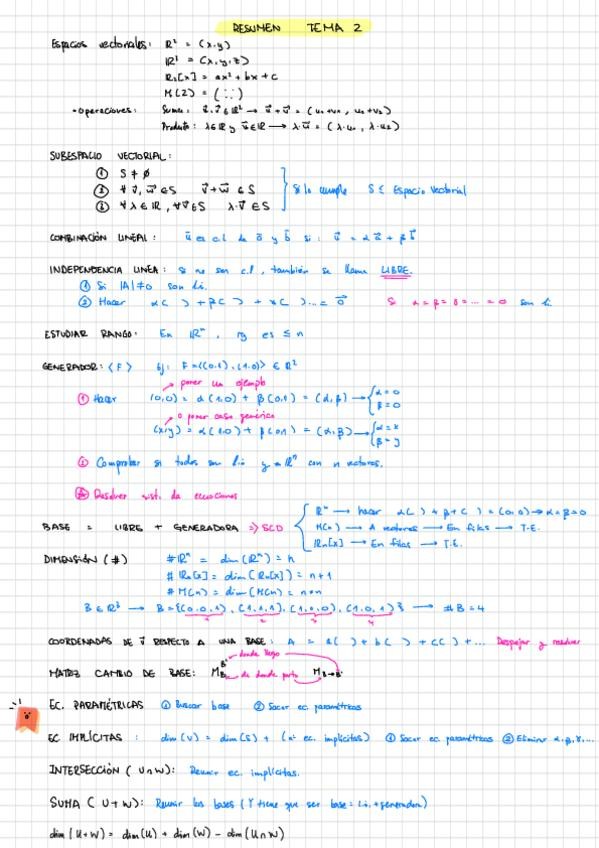 RESUMEN TEMA 2
Espacios vectoriales: R² = (x,y)
R³ = (x,y,z)
R₂[x] = ax² + bx + c
M(2) = (∷)
• operaciones: Suma: u⃗, v⃗ ∈ R² → u⃗ + v⃗ = (u₁+v₁, u₂+v₂)
Producto: λ∈R y u⃗∈R → λ·u⃗ = (λ·u₁, λ·u₂)
SUBESPACIO VECTORIAL:
① S ≠ ∅
② ∀ v⃗, w⃗ ∈ S v⃗+w⃗ ∈ S Si lo cumple S ≤ Espacio Vectorial
③ ∀ λ ∈ R, ∀ v⃗ ∈ S λ·v⃗ ∈ S
COMBINACIÓN LINEAL: u⃗ es c.l de a⃗ y b⃗ si: u⃗ = α a⃗ + β b⃗
INDEPENDENCIA LINEA: Si no son c.l, también se llama LIBRE.
① Si |A| ≠ 0 son l.i.
② Hacer α( ) + β( ) + γ( )... = 0⃗ Si α = β = γ = ... = 0 son l.i
ESTUDIAR RANGO: En Rⁿ, rg es ≤ n
GENERADOR: ⟨F⟩ Ej: F=⟨(0,1),(1,0)⟩ ∈ R²
poner un ejemplo
① Hacer (0,0) = α(1,0) + β(0,1) = (α,β) → { α = 0 β = 0
o poner caso genérico
(x,y) = α(1,0) + β(0,1) = (α,β) → { α = x β = y
② Comprobar si todos son l.i y Rⁿ con n vectores.
Resolver sist. de ecuaciones
Rⁿ → hacer α( ) + β( ) = (0,0) → α=β=0
BASE = LIBRE + GENERADORA ⇒ SCD M(n) → A vectores → En filas → T.E.
Rn[x] → En filas → T.E.
DIMENSIÓN (#) # Rⁿ = dim (Rⁿ) = n
# Rn[x] = dim (Rn[x]) = n+1
# M(n) = dim (M(n)) = n×n
B ∈ R³ → B = {(0,0,1), (1,1,1), (1,0,0), (1,0,1)} → #B = 4
1 2 3 4
COORDENADAS DE v⃗ RESPECTO A UNA BASE: A = a( ) + b( ) + c( ) + ... Despejar y resolver
donde llego
MATRIZ CAMBIO DE BASE: M B B' de donde parto M B→B'
EC. PARAMÉTRICAS ① Buscar base ② Sacar ec. paramétricas
EC IMPLÍCITAS: dim(V) = dim(S) + (nº ec. implícitas) ① Sacar ec. paramétricas ② Eliminar α, β, γ, ...
INTERSECCIÓN (U∩W): Reunir ec. implícitas.
SUMA (U+W): Reunir las bases (Y tiene que ser base = l.i. + generadora)
dim(U+W) = dim(U) + dim(W) - dim(U∩W)